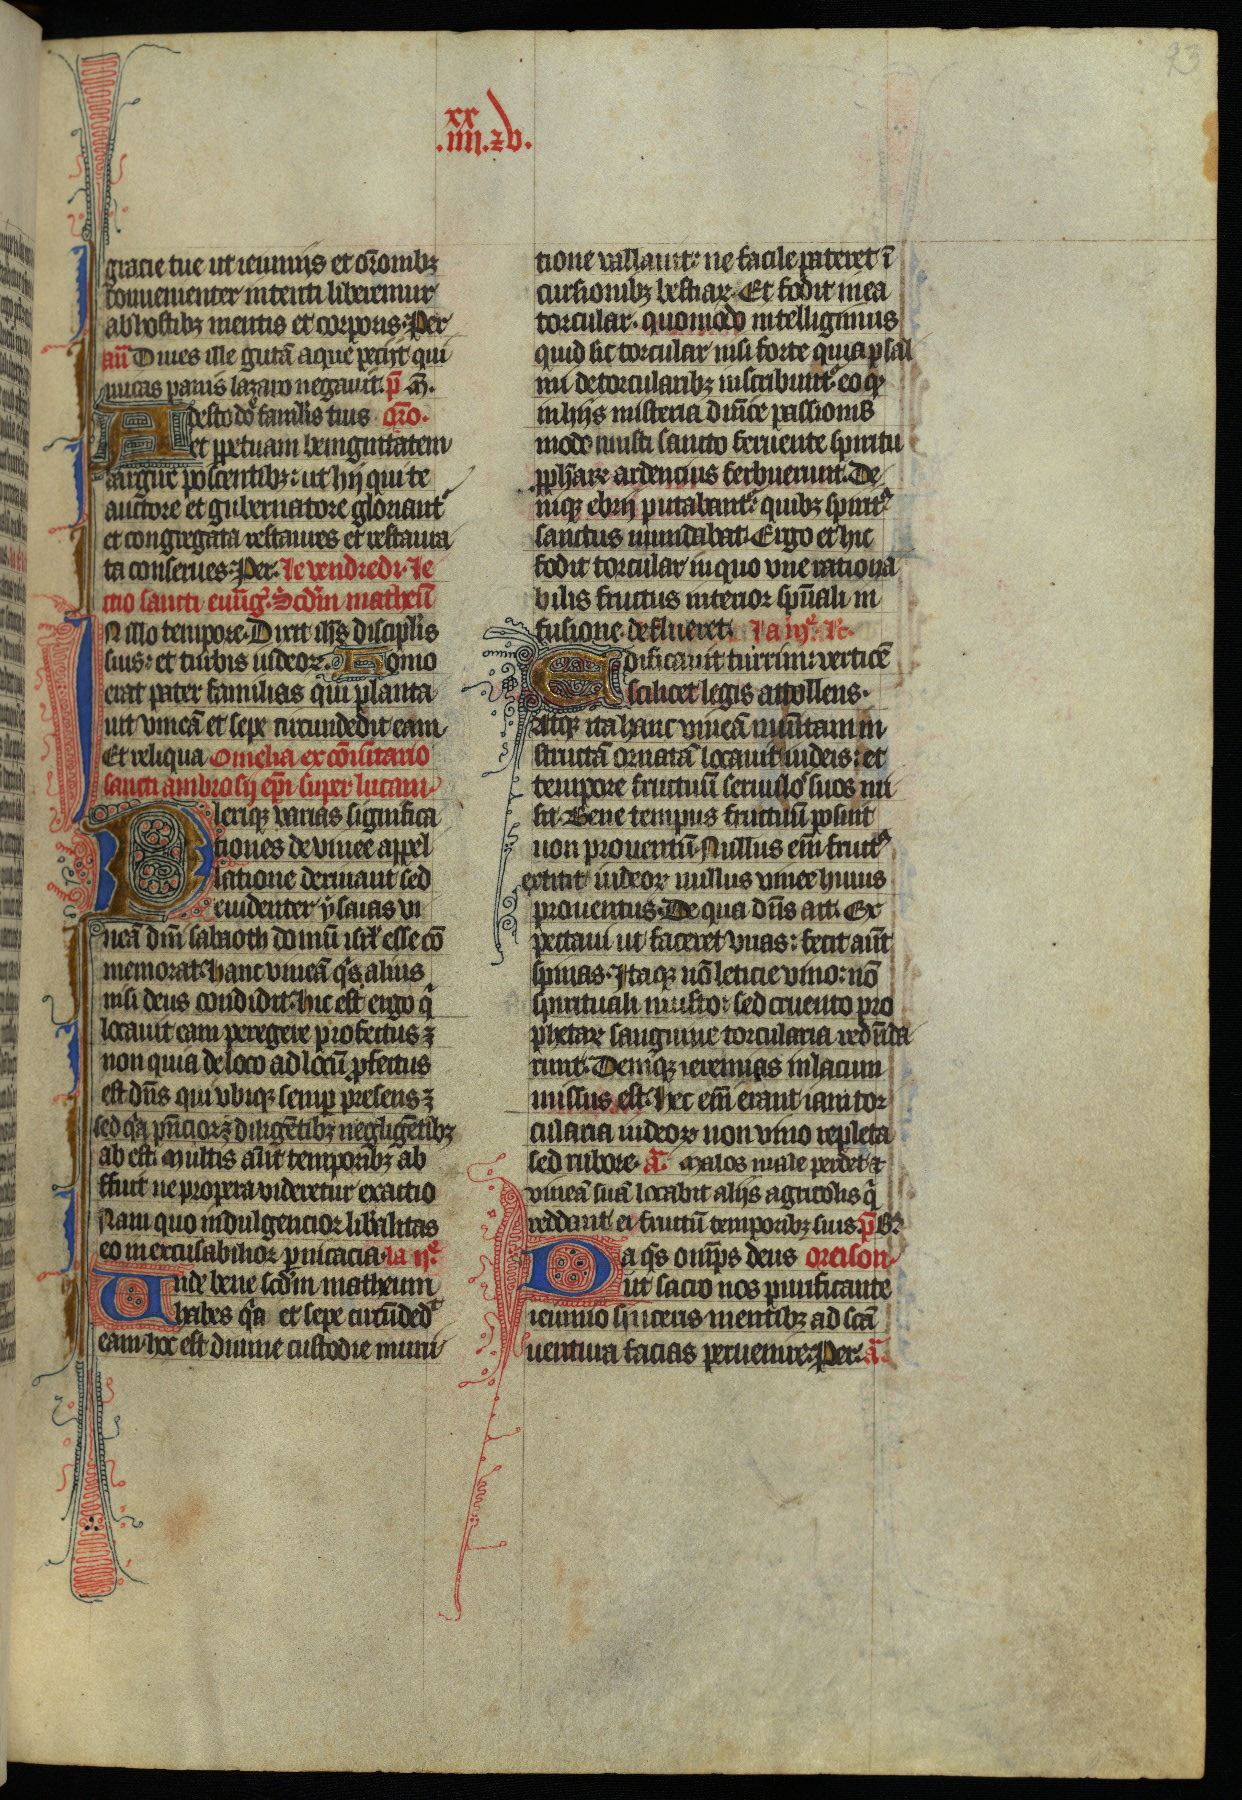 23
xx
.iiii.zv.
gracie tue ut ieiunijs et or̄onibꝫ
conuenienter intenti liberemur
ab hostibꝫ mentis et corporis. Per
añ Diues ille gutā aque peciit qui
micas panis lazaro negauit. p̄ M̄.
Adesto do famulis tuis or̄o.
et ꝑpetuam beingnitatem
largire poscentibꝫ: ut hij qui te
auctore et gubernatore gloriant᷑
et congregata restaures et restaura
ta conserues. Per. Je vendredi. le
ctio sancti euūg. Scd̄m matheū
N illo tempore. Dixit ih̄s discipl̄is
suis: et turbis iudeoꝝ. Homo
erat pater familias qui planta
uit vineā et sepe circundedit eam
Et reliqua Omelia ex cōm̄tario
sancti ambrosij ep̄i super lucam
Plerique varias significa
tiones de vinee appel
latione deriuant sed
euidenter ysaias vi
neā dn̄i sabaoth domū isrl̄ esse cō
memorat. Hanc vineā q̄s alius
nisi deus condidit. Hic est ergo q̄
locauit eam peregere profectus ⁊
non quia de loco ad locū ꝓfectus
est dn̄s qui vbiqꝫ semꝑ presens ⁊
sed q̄a pn̄cior ⁊ diligētibꝫ negligētibꝫ
ab est. Multis aūt temporibꝫ ab
fuit ne propera videretur exactio
Nam quo indulgencior lib̄alitas
eo inexcusabilior ꝑuicacia. la ije
Unde bene scd̄m matheum
habes q̄a et sepe circūded᷑
eam. hoc est diuine custodie muni
tione vallauit: ne facile pateret ī
cursionibꝫ bestiaꝝ. Et fodit in ea
torcular. quomodo intelligimus
quid sit torcular nisi forte quia psal
mi de torcularibꝫ inscribunt᷑. eo qꝫ
in hijs misteria dn̄ice passionis
modo musti sancto feruente spiritu
ꝓph̄aꝝ ardencius ferbuerunt. De
niqꝫ ebrij putabant᷑. quibꝫ spirit᷑
sanctus inundabat. Ergo et hic
fodit torcular in quo vue rationa
bilis fructus interior sp̄uali in
fusione deflueret. La iije. lc.
Edificauit turrim: verticē
scilicet legis attollens.
Atqꝫ ita hanc vineā munitam in
structā ornatā locauit iudeis: et
tempore fructuū seruulos suos mi
sit. Bene tempus fructuū posuit
non prouentū. Nullus em̄ fruct᷑
extitit iudeoꝝ nullus vinee huius
prouentus. De qua dn̄s ait. Ex
pectaui ut faceret vuas: fecit aūt
spinas. Itaqꝫ nō leticie vino: nō
spirituali musto: sed cruento pro
phetaꝝ sanguine torcularia redūda
runt. Deniqꝫ ieremias in lacum
missus est. Hec em̄ erant iam tor
cularia iudeoꝝ non vino repleta
sed rubore. ā. Malos male perdet ⁊
vineā suā locabit alijs agricolis q̄
reddant ei fructū temporibꝫ suis. p̄ B̄.
Da q̄s om̄ps deus oreison
ut sacro nos purificante
ieiunio sinceris mentibꝫ ad scā
uentura facias peruenire. Per. ā.